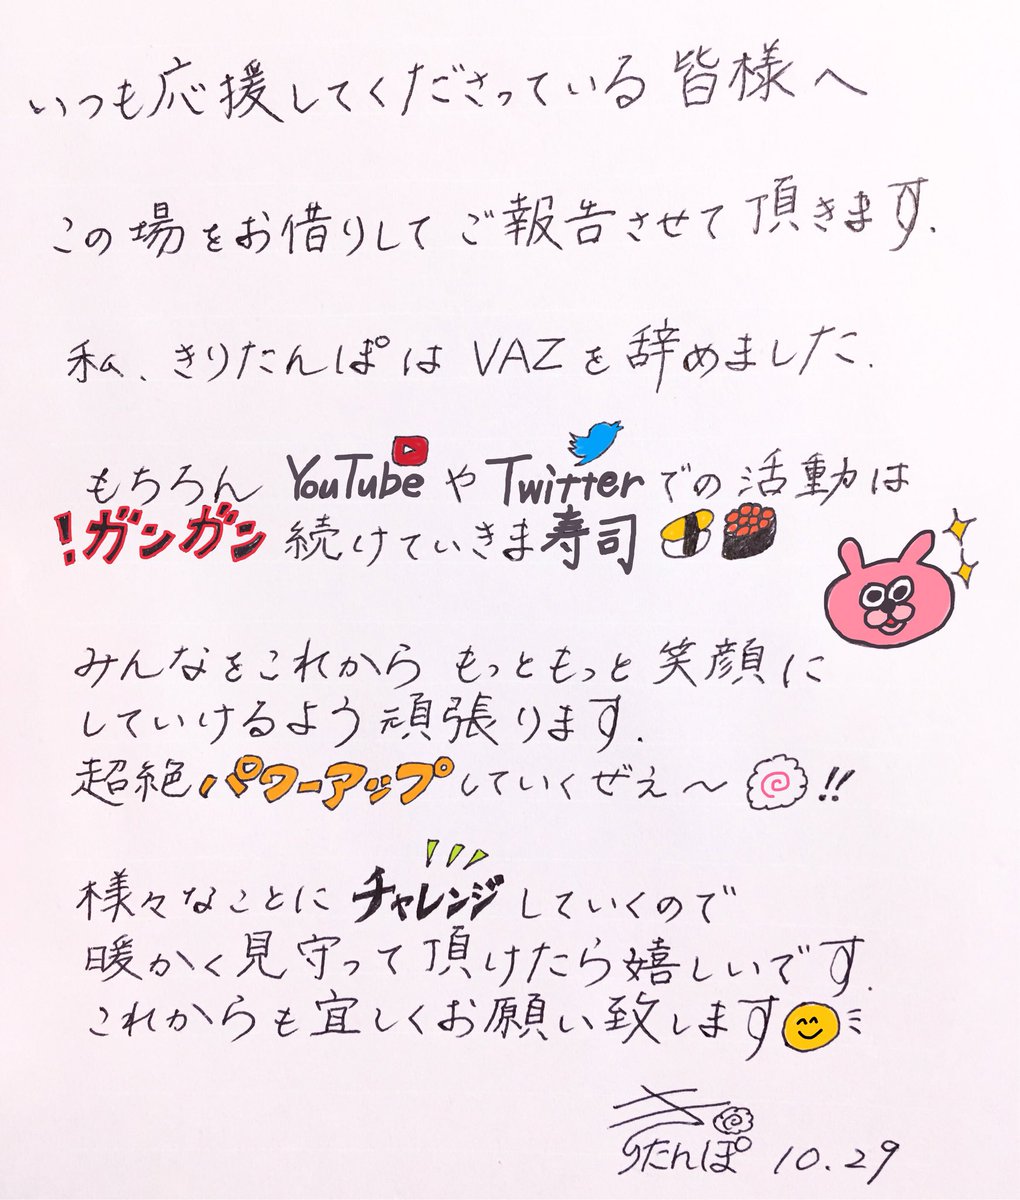 いつも応援してくださっている皆様へ
この場をお借りしてご報告させて頂きます.
私、きりたんぽはVAZを辞めました.
もちろんYouTubeやTwitterでの活動は
!ガンガン続けていきま寿司
みんなをこれからもっともっと笑顔に
していけるよう頑張ります.
超絶パワーアップしていくぜえ〜!!
様々なことにチャレンジしていくので
暖かく見守って頂けたら嬉しいです.
これからも宜しくお願い致します
きりたんぽ 10.29